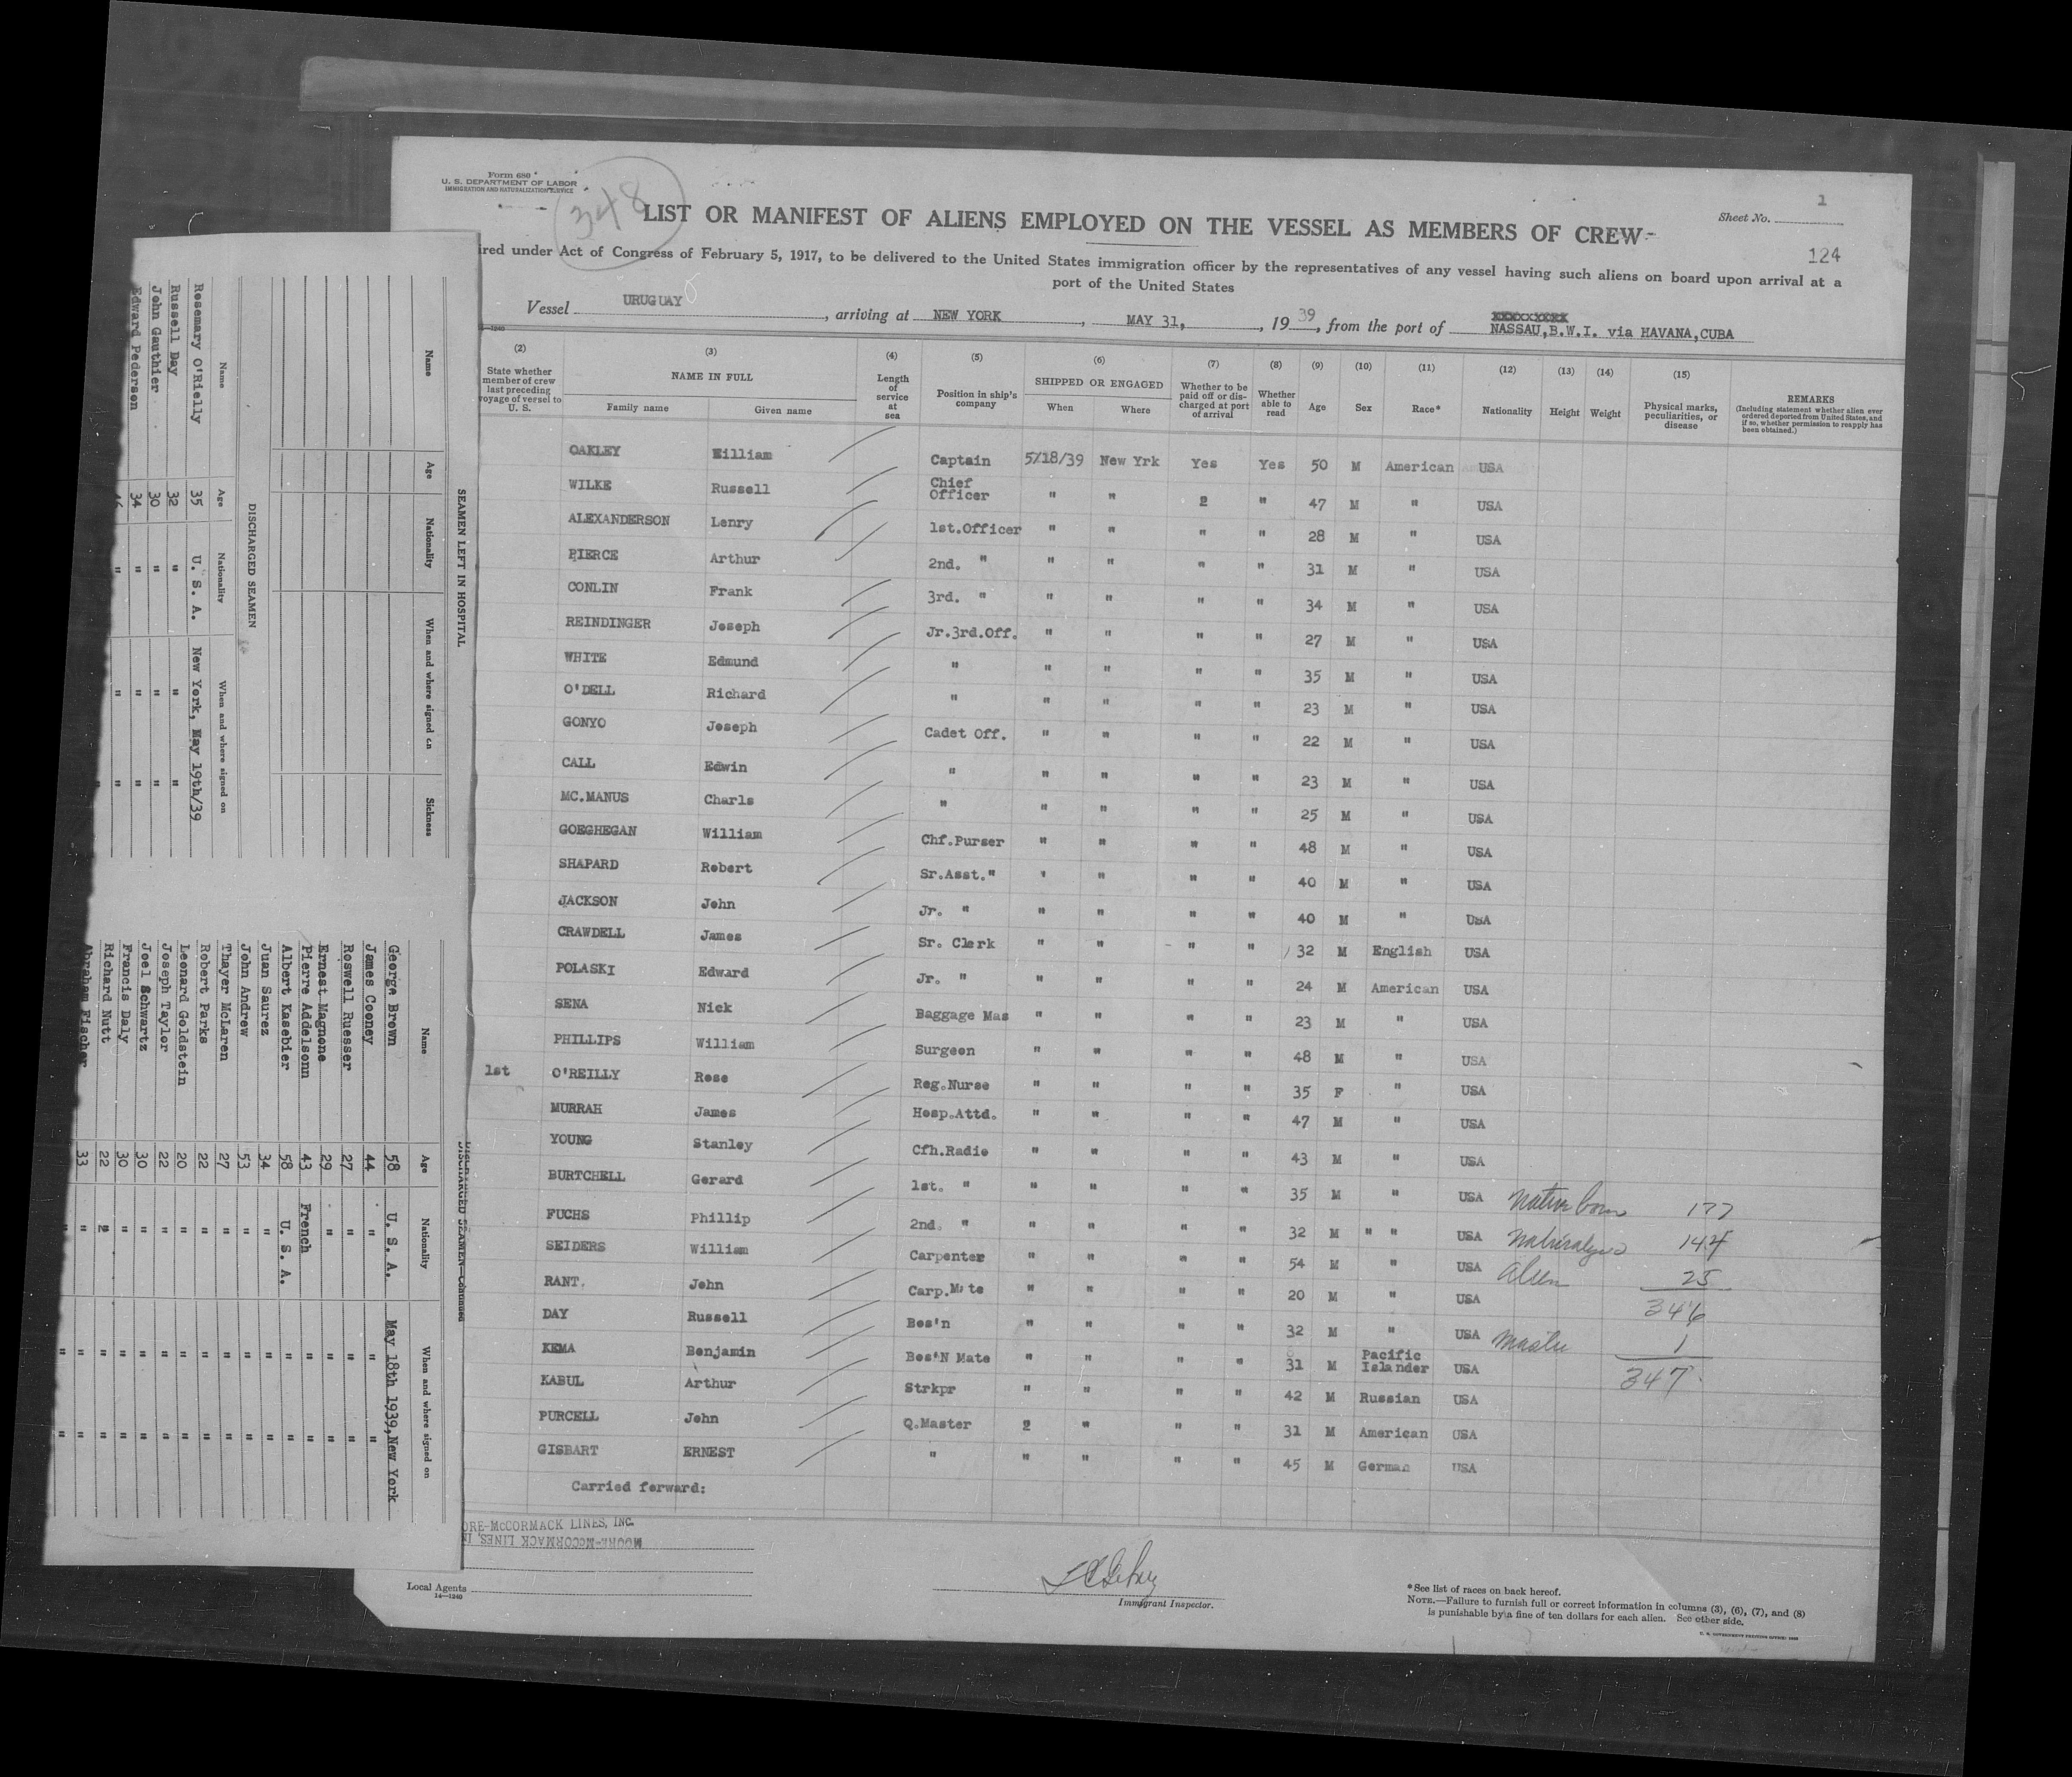 Form 680
U. S. DEPARTMENT OF LABOR
IMMIGRATION AND NATURALIZATION SERVICE
348
Sheet No. 1
LIST OR MANIFEST OF ALIENS EMPLOYED ON THE VESSEL AS MEMBERS OF CREW
124
ired under Act of Congress of February 5, 1917, to be delivered to the United States immigration officer by the representatives of any vessel having such aliens on board upon arrival at a
port of the United States
Vessel URUGUAY, arriving at NEW YORK, MAY 31, 1939, from the port of XXXXXXXXX NASSAU,B.W.I. via HAVANA,CUBA
14—1240
(2) (3) (4) (5) (6) (7) (8) (9) (10) (11) (12) (13) (14) (15)
State whether member of crew last preceding voyage of vessel to U. S.
NAME IN FULL
Family name Given name
Length of service at sea
Position in ship's company
SHIPPED OR ENGAGED
When Where
Whether to be paid off or discharged at port of arrival
Whether able to read
Age Sex Race* Nationality Height Weight
Physical marks, peculiarities, or disease
REMARKS
(Including statement whether alien ever ordered deported from United States, and if so, whether permission to reapply has been obtained.)
OAKLEY William Captain 5/18/39 New Yrk Yes Yes 50 M American USA
WILKE Russell Chief Officer " " 2 " 47 M " USA
ALEXANDERSON Lenry 1st.Officer " " " " 28 M " USA
PIERCE Arthur 2nd. " " " " " 31 M " USA
CONLIN Frank 3rd. " " " " " 34 M " USA
REINDINGER Joseph Jr.3rd.Off. " " " " 27 M " USA
WHITE Edmund " " " " " 35 M " USA
O'DELL Richard " " " " " 23 M " USA
GONYO Joseph Cadet Off. " " " " 22 M " USA
CALL Edwin " " " " " 23 M " USA
MC.MANUS Charls " " " " " 25 M " USA
GOEGHEGAN William Chf.Purser " " " " 48 M " USA
SHAPARD Robert Sr.Asst." " " " " 40 M " USA
JACKSON John Jr. " " " " " 40 M " USA
CRAWDELL James Sr. Clerk " " " " 32 M English USA
POLASKI Edward Jr. " " " " " 24 M American USA
SENA Nick Baggage Mas " " " " 23 M " USA
PHILLIPS William Surgeon " " " " 48 M " USA
1st O'REILLY Rose Reg.Nurse " " " " 35 F " USA
MURRAH James Hosp.Attd. " " " " 47 M " USA
YOUNG Stanley Cfh.Radio " " " " 43 M " USA
BURTCHELL Gerard 1st. " " " " " 35 M " USA
FUCHS Phillip 2nd. " " " " " 32 M " " USA
SEIDERS William Carpenter " " " " 54 M " USA
RANT. John Carp.Mate " " " " 20 M " USA
DAY Russell Bos'n " " " " 32 M " USA
KEMA Benjamin Bos'N Mate " " " " 31 M Pacific Islander USA
KABUL Arthur Strkpr " " " " 42 M Russian USA
PURCELL John Q.Master 2 " " " 31 M American USA
GISBART ERNEST " " " " " 45 M German USA
Carried forward:
Native born 177
Naturalized 144
Alien 25
346
Master 1
347
ORE-McCORMACK LINES, INC.
MOORE-McCORMACK LINES, IN
Local Agents
14—1240
Immigrant Inspector.
*See list of races on back hereof.
NOTE.—Failure to furnish full or correct information in columns (3), (6), (7), and (8)
is punishable by a fine of ten dollars for each alien. See other side.
U. S. GOVERNMENT PRINTING OFFICE: 1938
SEAMEN LEFT IN HOSPITAL
Name Age Nationality When and where signed on Sickness
DISCHARGED SEAMEN
Name Age Nationality When and where signed on
Rosemary O'Rielly 35 U. S. A. New York, May 19th/39
Russell Day 32 " " "
John Gauthier 30 " " "
Edward Pederson 34 " " "
DISCHARGED SEAMEN—Continued
Name Age Nationality When and where signed on
George Brown 58 U. S. A. May 18th 1939,New York
James Cooney 44 " " "
Roswell Ruesser 27 " " "
Ernest Magnone 29 " " "
Pierre Addelsonn 43 French " "
Albert Kasebier 58 U. S. A. " "
Juan Saurez 34 " " "
John Andrew 53 " " "
Thayer McLaren 27 " " "
Robert Parks 22 " " "
Leonard Goldstein 20 " " "
Joseph Taylor 22 " " "
Joel Schwartz 30 " " "
Francis Daly 30 " " "
Richard Nutt 22 " " "
Abraham Fischer 33 " " "